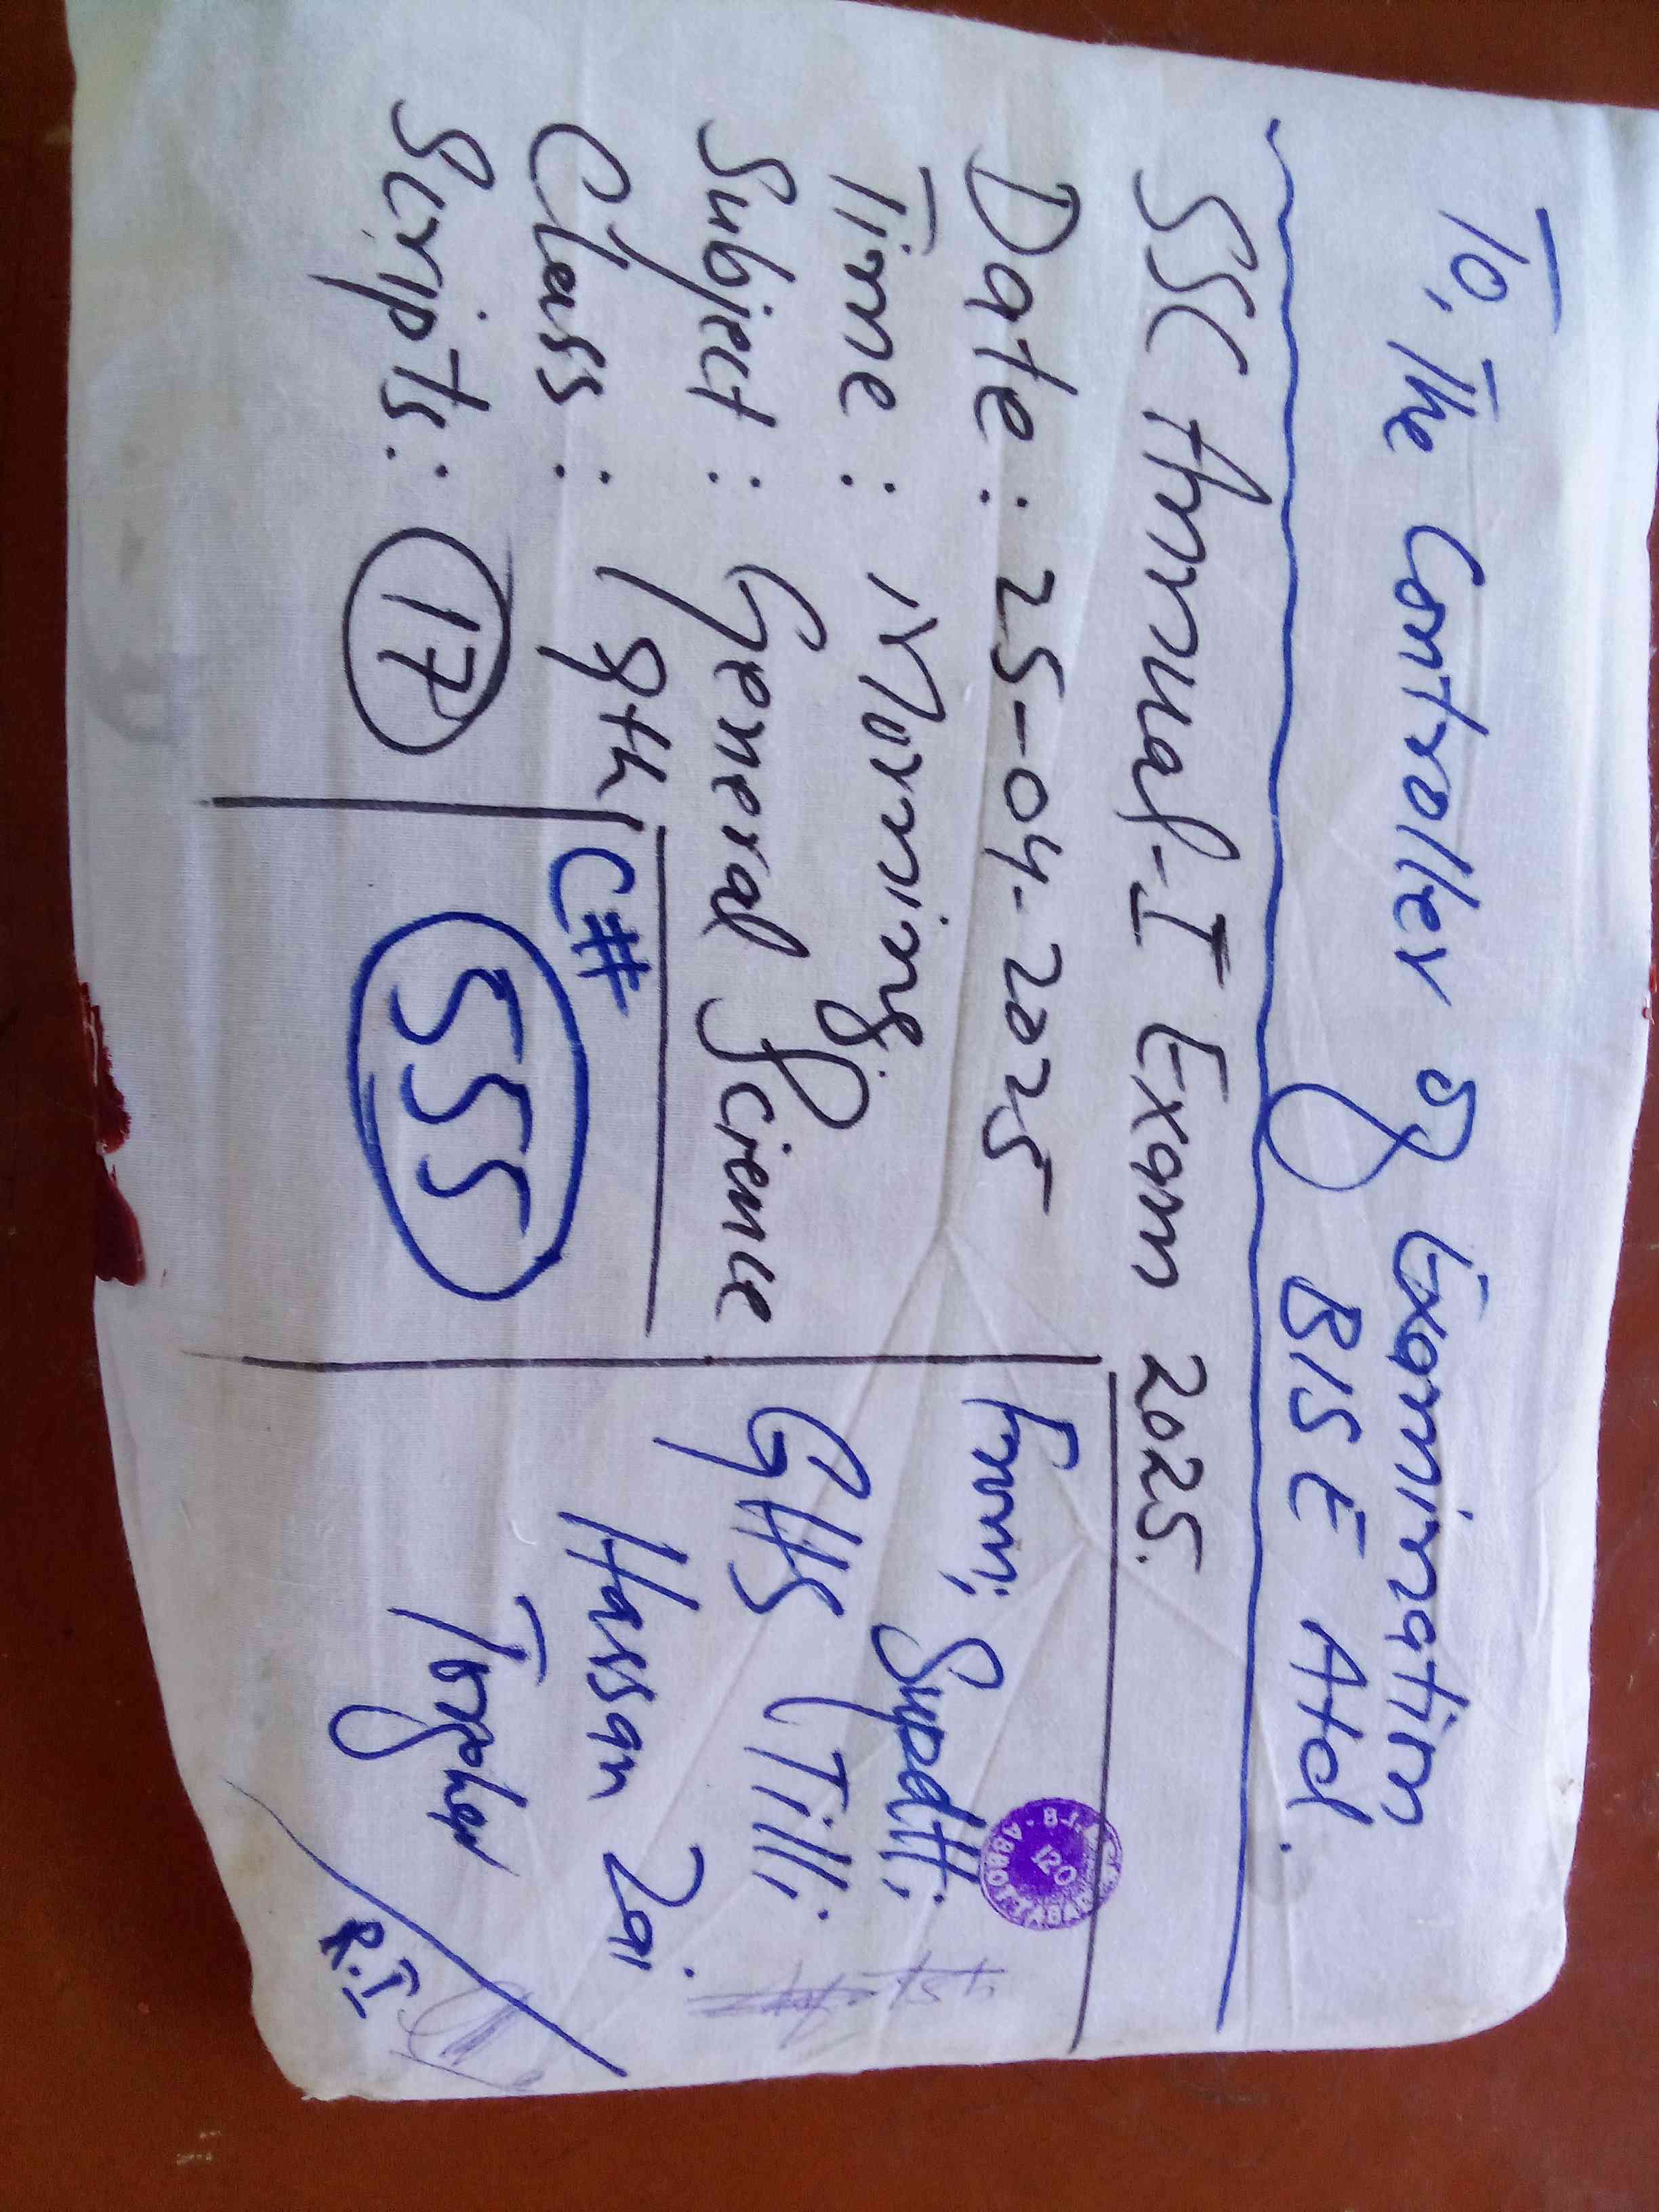 To, The Controller of Examination
BISE Atd.
SSC Annual-I Exam 2025.
Date : 25-04-2025
Time : Morning
Subject : General Science
Class : 9th
Scripts : 17
C#
555
From; Supdtt;
GHS Tilli
Hassan Zai
Torghar
R.I
120
ABBOTTABAD